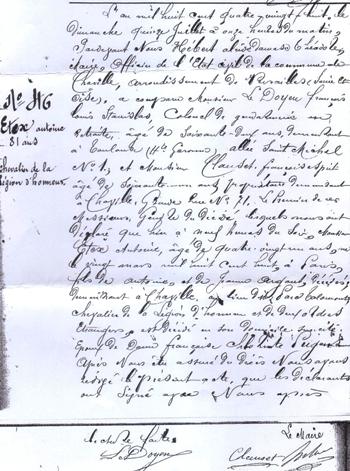 L'an mil huit cent quatre-vingt huit, le
Dimanche quinze Juillet à onze heures du matin,
Pardevant Nous Hébert
Maire, Officier de l'Etat civil de la commune de
Chaville, arrondissement de Versailles, Seine et
Oise, a comparu Monsieur Le Doyen François
Louis Stanislas, Colonel de gendarmerie en
retraite, âgé de soixante-deux ans, demeurant
à Toulouse (Hte Garonne), allée Saint Michel
N° 1, et Monsieur Clauset, François esprit
âgé de soixante ans demeurant
à Chaville, Grande Rue N° 71. Le Premier de ces
Messieurs, du Décédé, lesquels nous ont
déclaré que hier à neuf heures du soir, Monsieur
Etex Antoine, âgé de quatre-vingt-un ans, né
le vingt mars mil huit cent huit, à Paris,
fils de Antoine, et de Jeanne
demeurant à Chaville,
Chevalier de la Légion d'honneur et de Ordres
Etrangers, est décédé en son Domicile susdit,
Epoux de Dame Françoise
Après Nous être assuré du décès Nous avons
rédigé le présent acte, que les déclarants
ont signé avec Nous après
N° 46
Etex antoine
81 ans
Chevalier de la
Légion d'honneur
lecture faite
Le Doyen
Clauset
Le Maire